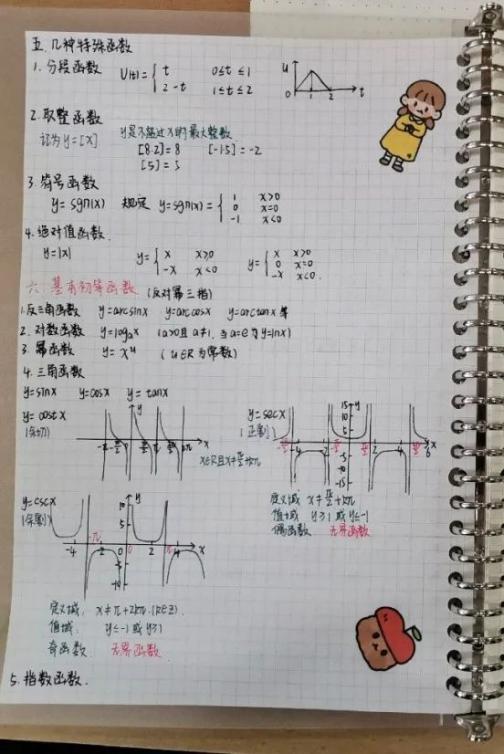 五.几种特殊函数
1.分段函数 U(t)={ t 0≤t≤1
2-t 1≤t≤2
u 0 1 2 t
2.取整函数
记为y=[x] y是不超过x的最大整数
[8.2]=8 [-1.5]=-2
[5]=5
3.符号函数
y=sgn(x) 规定 y=sgn(x)={ 1 x>0
0 x=0
-1 x<0
4.绝对值函数.
y=|x| y={ x x≥0
-x x<0
y={ x x>0
0 x=0
-x x<0.
六.基本初等函数 (反对幂三指)
1.反三角函数 y=arcsinx y=arccosx y=arctanx等
2.对数函数 y=logax (a>0且a≠1,当a=e为y=lnx)
3.幂函数 y=x^u (u∈R为常数)
4.三角函数
y=sinx y=cosx y=tanx
y=cotx
(余切)
y=secx
(正割)
定义域 x≠π/2+kπ
值域 y≥1或y≤-1
偶函数 无界函数
y=cscx
(余割)
-4 -2 0 2 4 x
10 5 -10
定义域: x≠π+2kπ.(k∈Z).
值域: y≤-1或y≥1
奇函数 无界函数
5.指数函数.